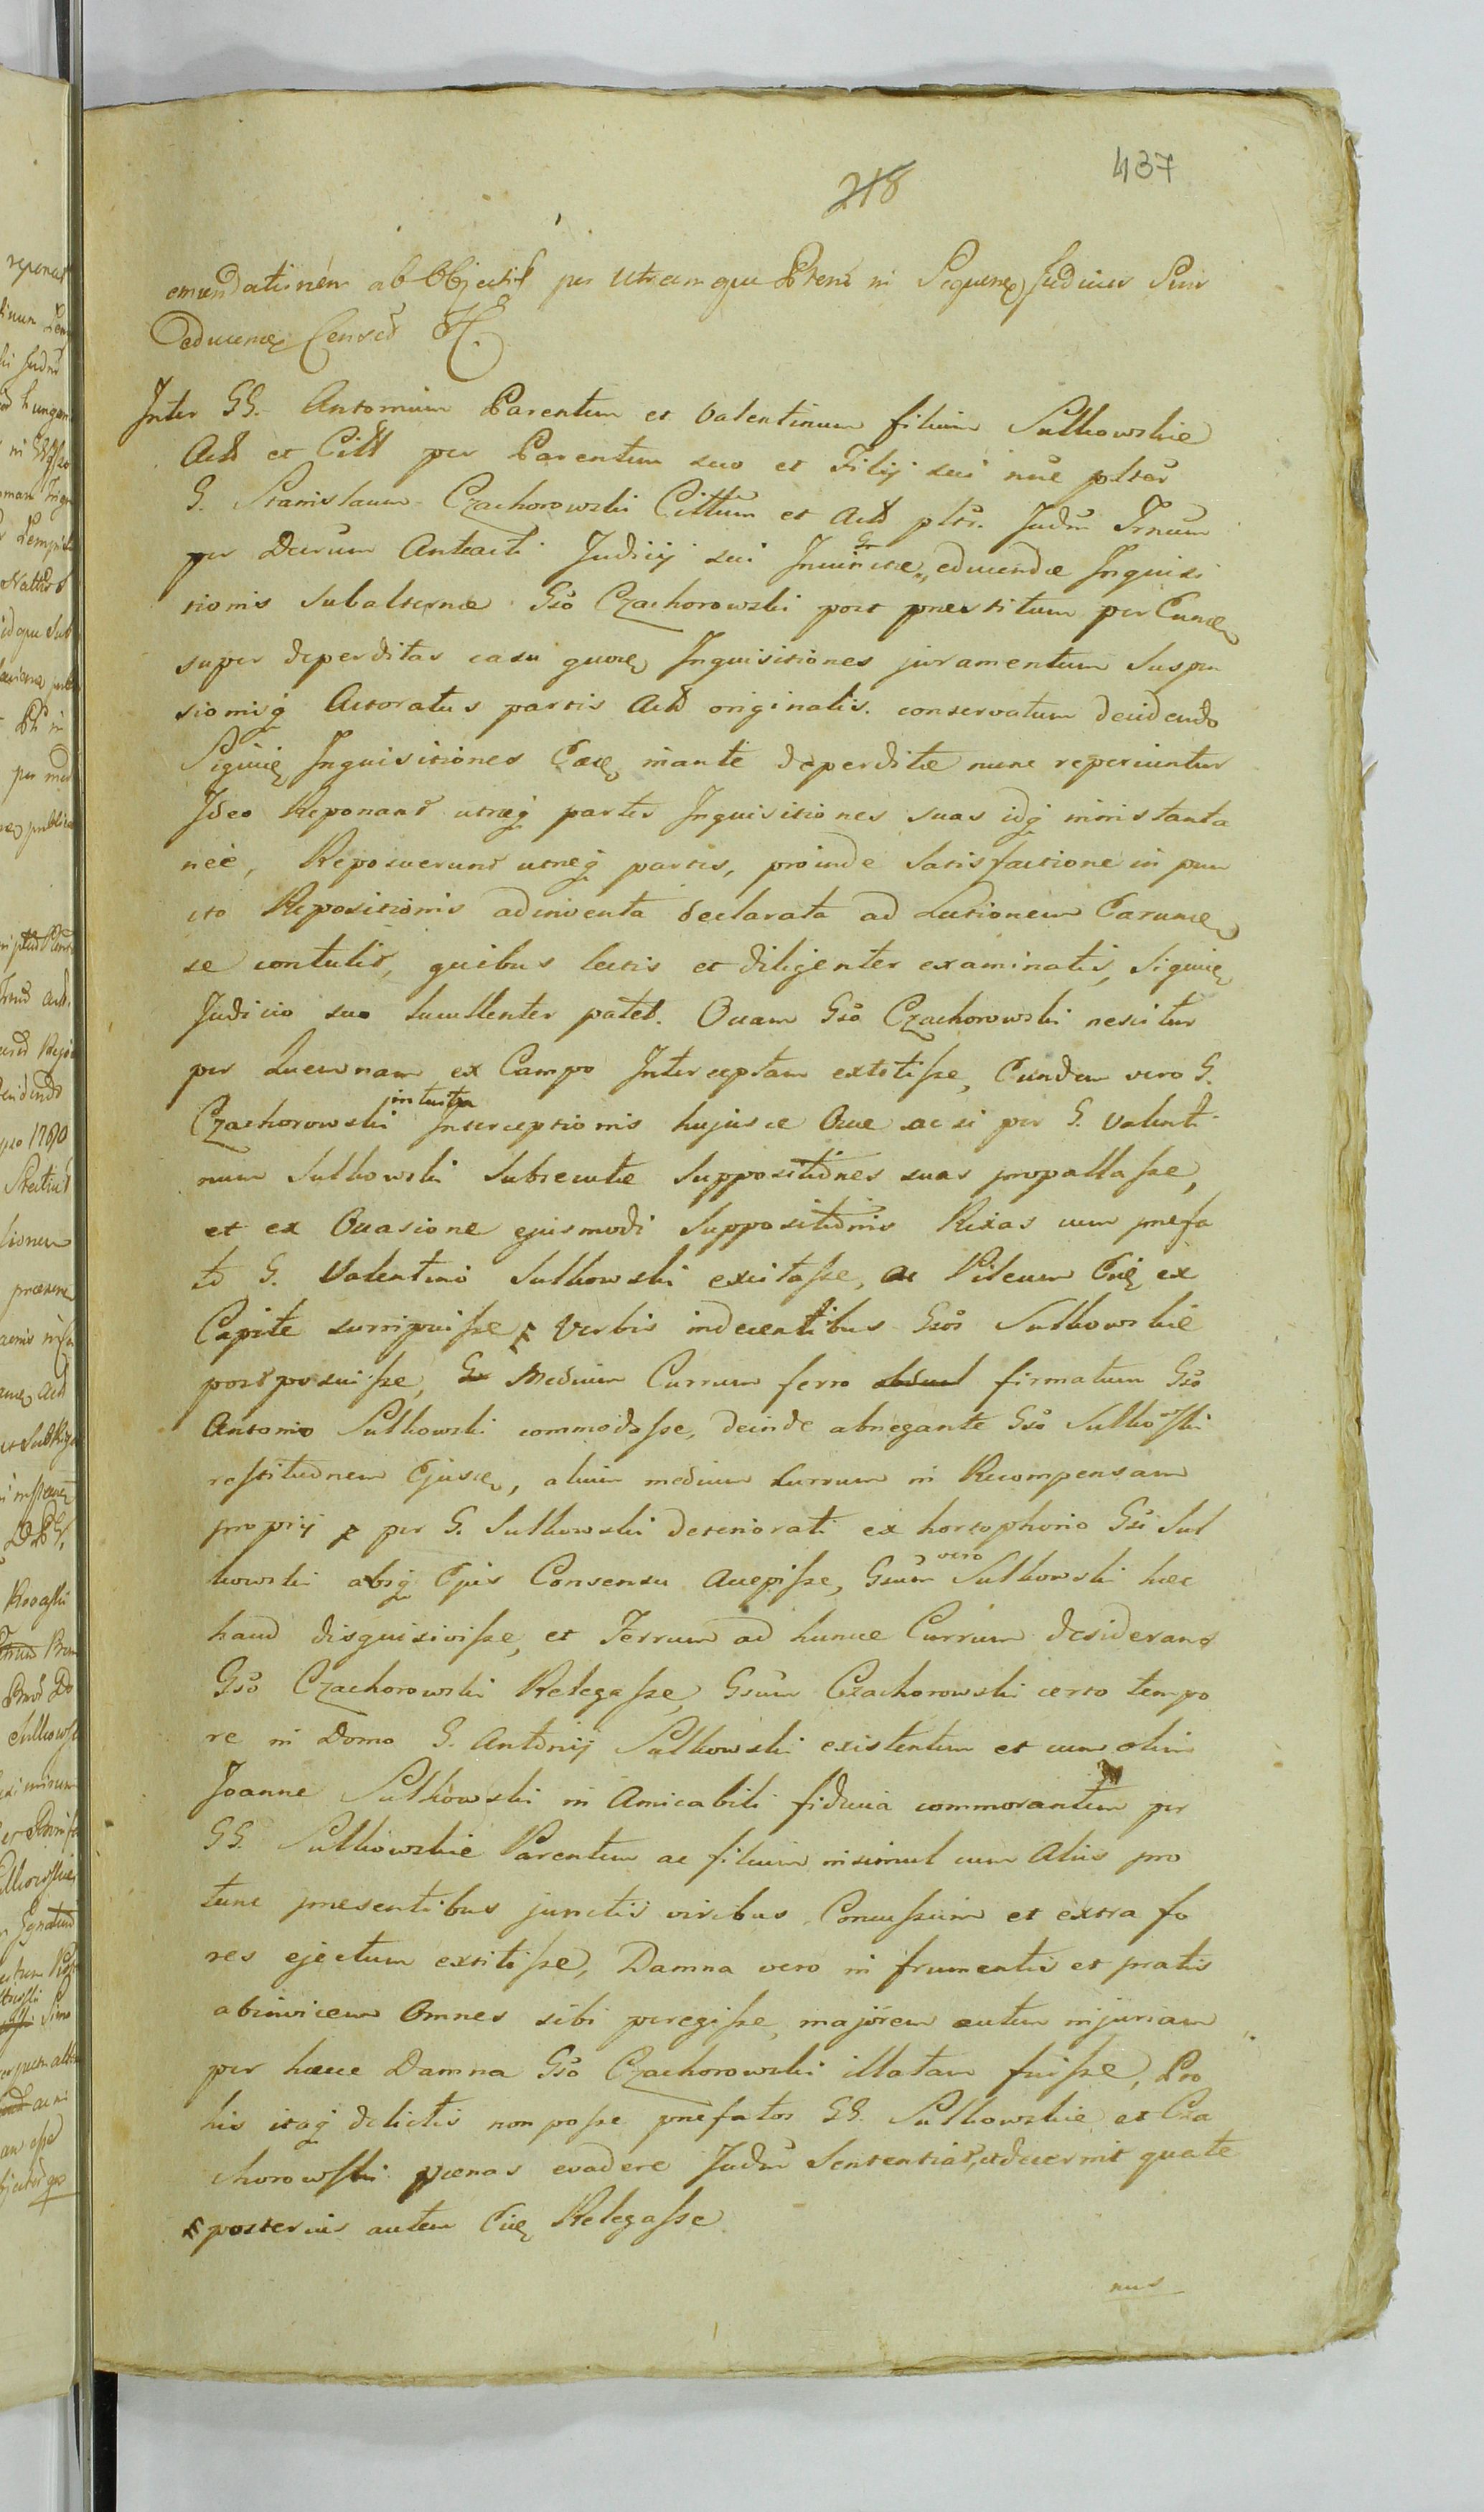 437
218
emendationem ab Objectis per Utramque Ptem in Sequenq Judicus Suis
educenq Censet H.
Inter GG. Antonium Parentem et Valentinum filium Sulkowskie
Act et Citt per Parentem suo et Filij sui nne pltes
G. Stanislaum Czachorowski Cittum et Act plte. Judm Trnum
per Decrum Anteacti Judicij sui Inuinctae, educendae Inquisi
tionis Subalternae Gso Czachorowski post praestitum per Eumq
super deperditas casu quoq Inquisitiones juramentum Suspen
sionisq Actoratus partis Act originalis. conservatum decidendo
Siquiq Inquisitiones Eaeq inante deperditae nunc reperiuntur
Ideo Reponant utraeq partes Inquisitiones suas idq ininstanta
nee, Reposuerunt utreq partes, proinde Satisfactione in pun
cto Repositionis adinventa declarata ad Lectionem Earumq
se contulit, quibus lectis et diligenter examinatis, Siquiq
Judicio suo Luculenter patet. Ovam Gso Czachorowski nescitur
per Quemnam ex Campo Interceptam extitisse, Eundem vero G.
Czachorowski intuitu Interceptionis hujusce Ovae ac si per G. Valenti
num Sulkowski Subsecutae Suppositiones suas propallasse,
et ex Occasione ejusmodi Suppositionis Rixas cum praefa
to G. Valentino Sulkowski excitasse, ac Pileum Eiq ex
Capite surripuisse, Verbis indecentibus Gsos Sulkowskie
postposuisse, Gs Medium Currum ferro firmatum Gso
Antonio Sulkowski commodasse, deinde abnegante Gso Sulkowski
restitudnem Ejusq, alium medium currum in Recompensam
proprij per G. Sulkowski deteriorati ex hortophorio Gsi Sul
kowski absq Ejus Consensu Accepisse, Gsum vero Sulkowski haec
haud disquisivisse, et Ferrum ad hunce Currum desiderans
Gso Czachorowski Relegasse, Gsum Czachorowski certo tempo
re in Domo G. Antonij Sulkowski existentem et cum olim
Joanne Sulkowski in Amicabili fiducia commorantem per
GG. Sulkowskie Parentem ac filium insimul cum Aliis pro
tunc praesentibus junctis viribus Concussum et extra fo
res ejectum extitisse, Damna vero in frumentis et pratis
abinvicem Omnes sibi peregisse, majorem autem injuriam
per haece Damna Gso Czachorowski illatam fuisse, Pro
his itaq delictis non posse praefatos GG. Sulkowskie et Cza
chorowski poenas evadere Judm Sententiat, et decernit quate
posterius autem Eiq Relegasse
nus